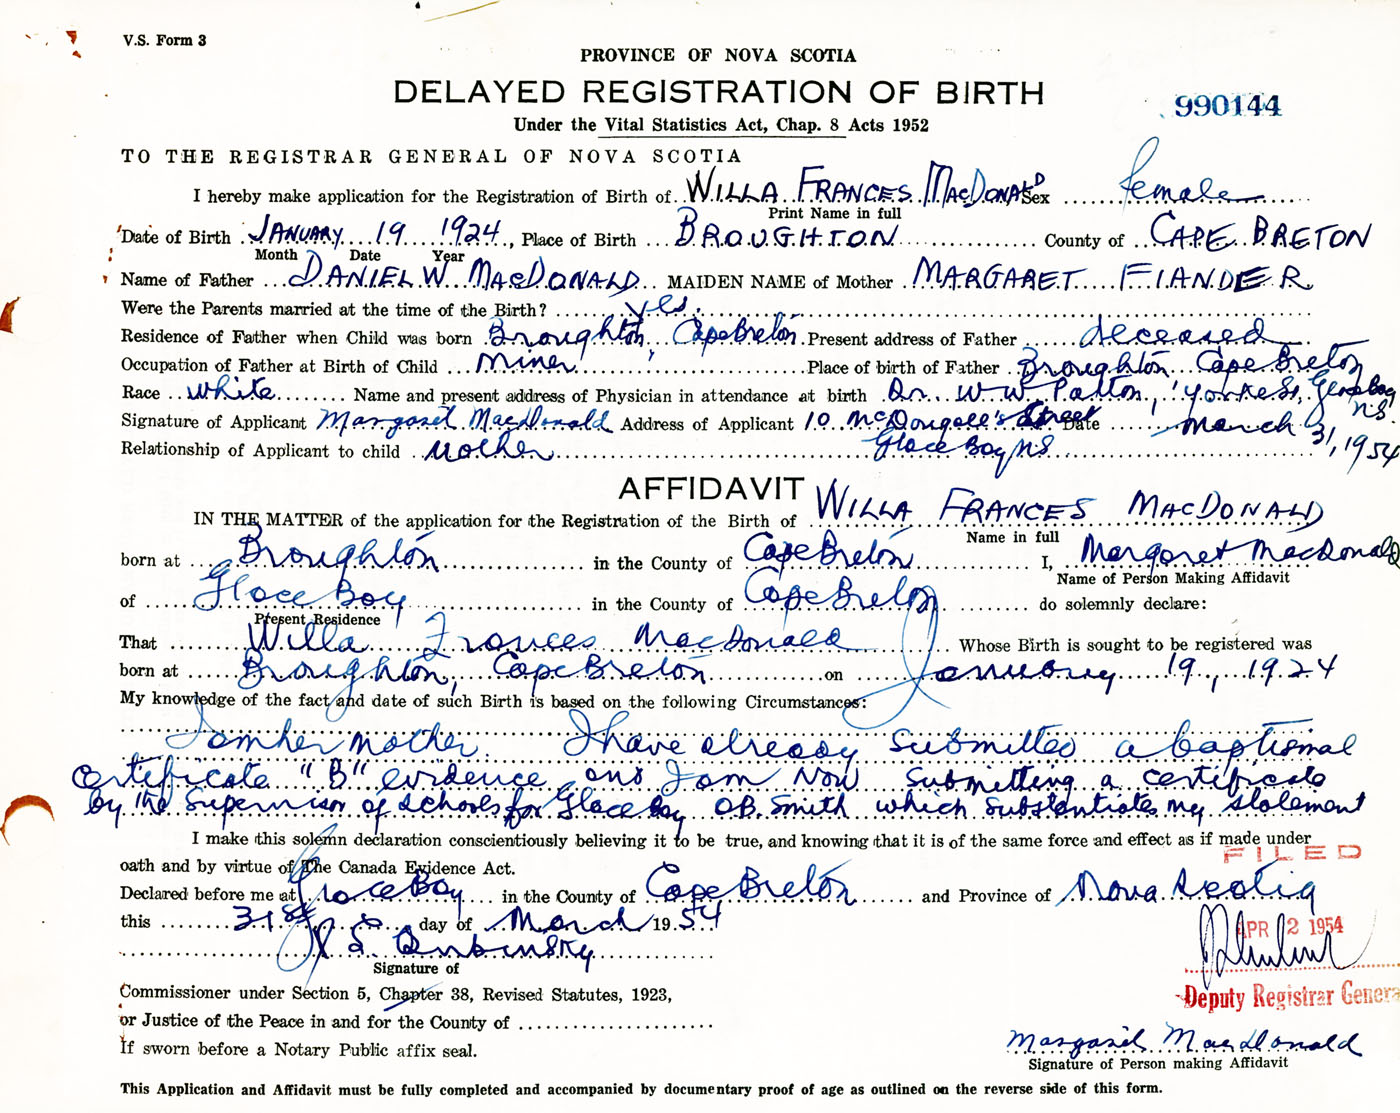 V.S. Form 3
PROVINCE OF NOVA SCOTIA
DELAYED REGISTRATION OF BIRTH
990144
Under the Vital Statistics Act, Chap. 8 Acts 1952
TO THE REGISTRAR GENERAL OF NOVA SCOTIA
I hereby make application for the Registration of Birth of WILLA FRANCES MACDONALD Sex female
Print Name in full
Date of Birth JANUARY 19 1924, Place of Birth BROUGHTON County of CAPE BRETON
Month Date Year
Name of Father DANIEL W MACDONALD MAIDEN NAME of Mother MARGARET FIANDER
Were the Parents married at the time of the Birth? yes
Residence of Father when Child was born Broughton, Cape Breton Present address of Father deceased
Occupation of Father at Birth of Child Miner Place of birth of Father Broughton Cape Breton
Race white Name and present address of Physician in attendance at birth Dr. W.W. Patton, Yorke St, Glace Bay N.S.
Signature of Applicant Margaret MacDonald Address of Applicant 10 McDougall's Street Date March 31, 1954
Relationship of Applicant to child Mother Glace Bay NS
AFFIDAVIT
IN THE MATTER of the application for the Registration of the Birth of WILLA FRANCES MACDONALD
Name in full
born at Broughton in the County of Cape Breton I, Margaret MacDonald
Name of Person Making Affidavit
of Glace Bay in the County of Cape Breton do solemnly declare:
Present Residence
That Willa Frances MacDonald Whose Birth is sought to be registered was
born at Broughton, Cape Breton on January 19, 1924
My knowledge of the fact and date of such Birth is based on the following Circumstances:
I am her mother. I have already submitted a baptismal
certificate "B" evidence and I am now submitting a certificate
by the Supervisor of schools for Glace Bay OB. Smith which substantiates my statement
I make this solemn declaration conscientiously believing it to be true, and knowing that it is of the same force and effect as if made under
oath and by virtue of The Canada Evidence Act.
FILED
Declared before me at Glace Bay in the County of Cape Breton and Province of Nova Scotia
this 31st day of March 1954
APR 2 1954
Signature of
Deputy Registrar General
Commissioner under Section 5, Chapter 38, Revised Statutes, 1923,
or Justice of the Peace in and for the County of
Margaret MacDonald
If sworn before a Notary Public affix seal.
Signature of Person making Affidavit
This Application and Affidavit must be fully completed and accompanied by documentary proof of age as outlined on the reverse side of this form.